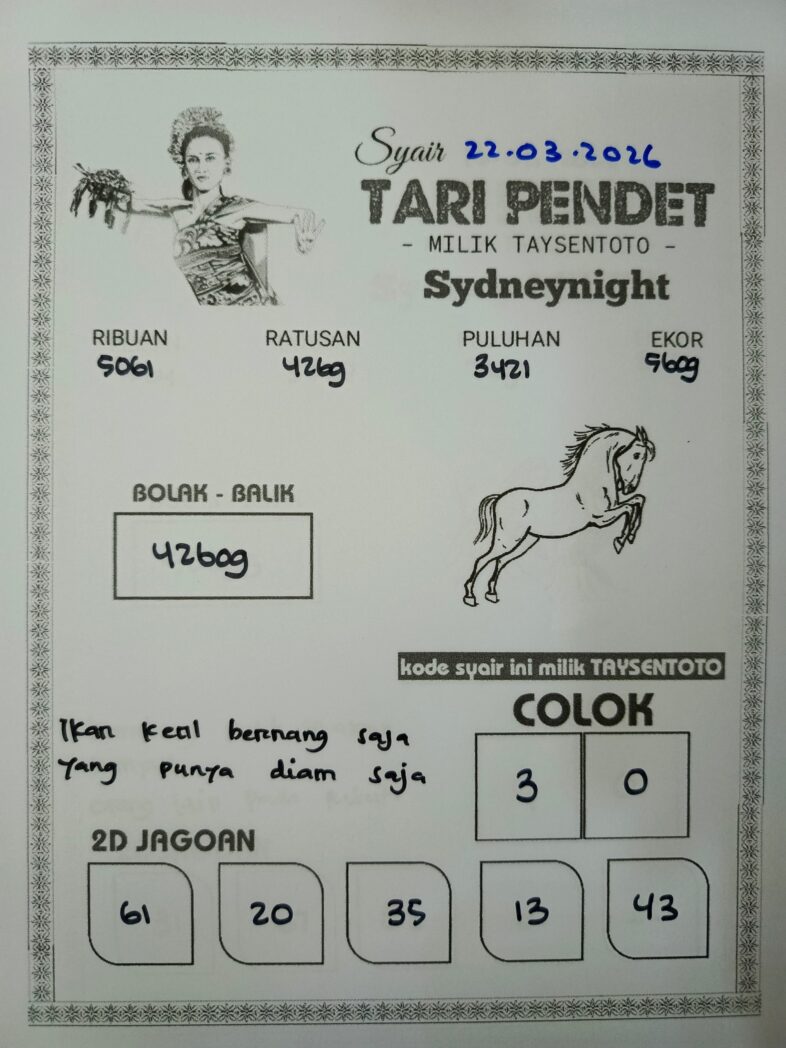 Syair 22.03.2026
TARI PENDET
- MILIK TAYSENTOTO -
Sydneynight
RIBUAN RATUSAN PULUHAN EKOR
5061 4269 3421 5609
BOLAK - BALIK
42609
kode syair ini milik TAYSENTOTO
COLOK
3 0
Ikan kecil berenang saja
Yang punya diam saja
2D JAGOAN
61 20 35 13 43